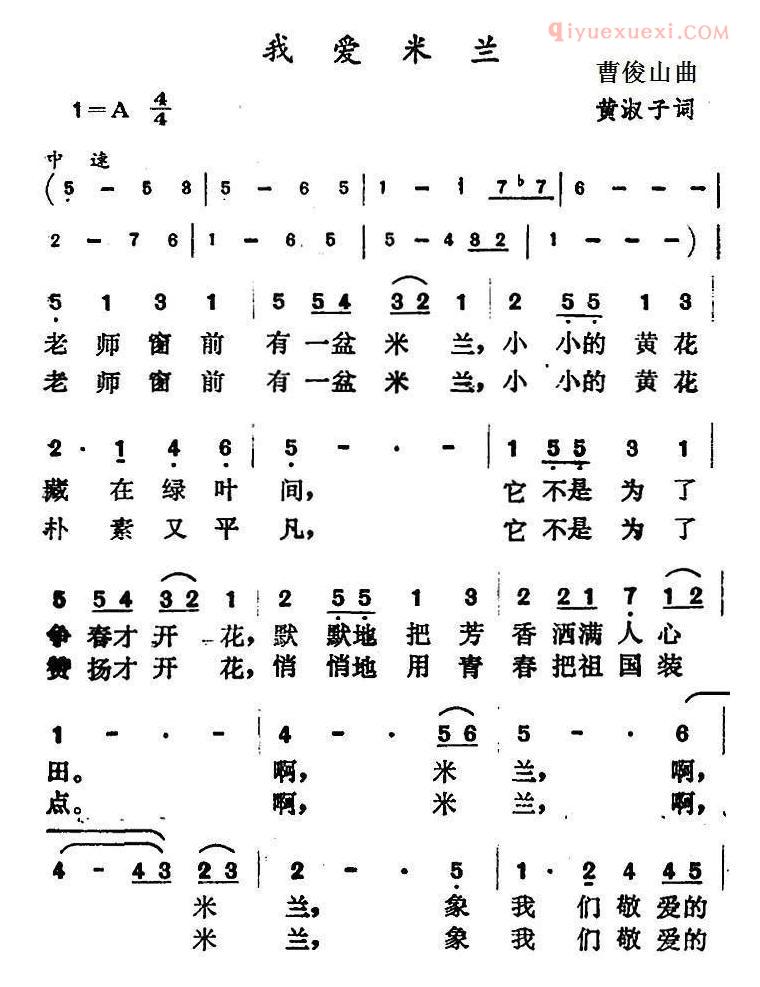 qiyuexuexi.com
我爱米兰
曹俊山曲
1=A 4/4
黄淑子词
中速
(5 - 5 3 | 5 - 6 5 | 1 - i 7♭7 | 6 - - - |
2 - 7 6 | 1 - 6 5 | 5 - 4 32 | 1 - - - ) |
5 1 3 1 | 5 54 32 1 | 2 55 1 3 |
老师窗前 有一盆米兰，小小的黄花
老师窗前 有一盆米兰，小小的黄花
2 · 1 4 6 | 5 - · - · | 1 55 3 1 |
藏在绿叶间， 它不是为了
朴素又平凡， 它不是为了
5 54 32 1 | 2 55 1 3 | 2 21 7 12 |
争春才开花，默默地把芳香洒满人心
赞扬才开花，悄悄地用青春把祖国装
1 - · - | 4 - · 56 | 5 - · 6 |
田。 啊， 米兰， 啊，
点。 啊， 米兰， 啊，
4 - 43 23 | 2 - · 5 | 1 · 2 4 45 |
米兰， 象我们敬爱的
米兰， 象我们敬爱的